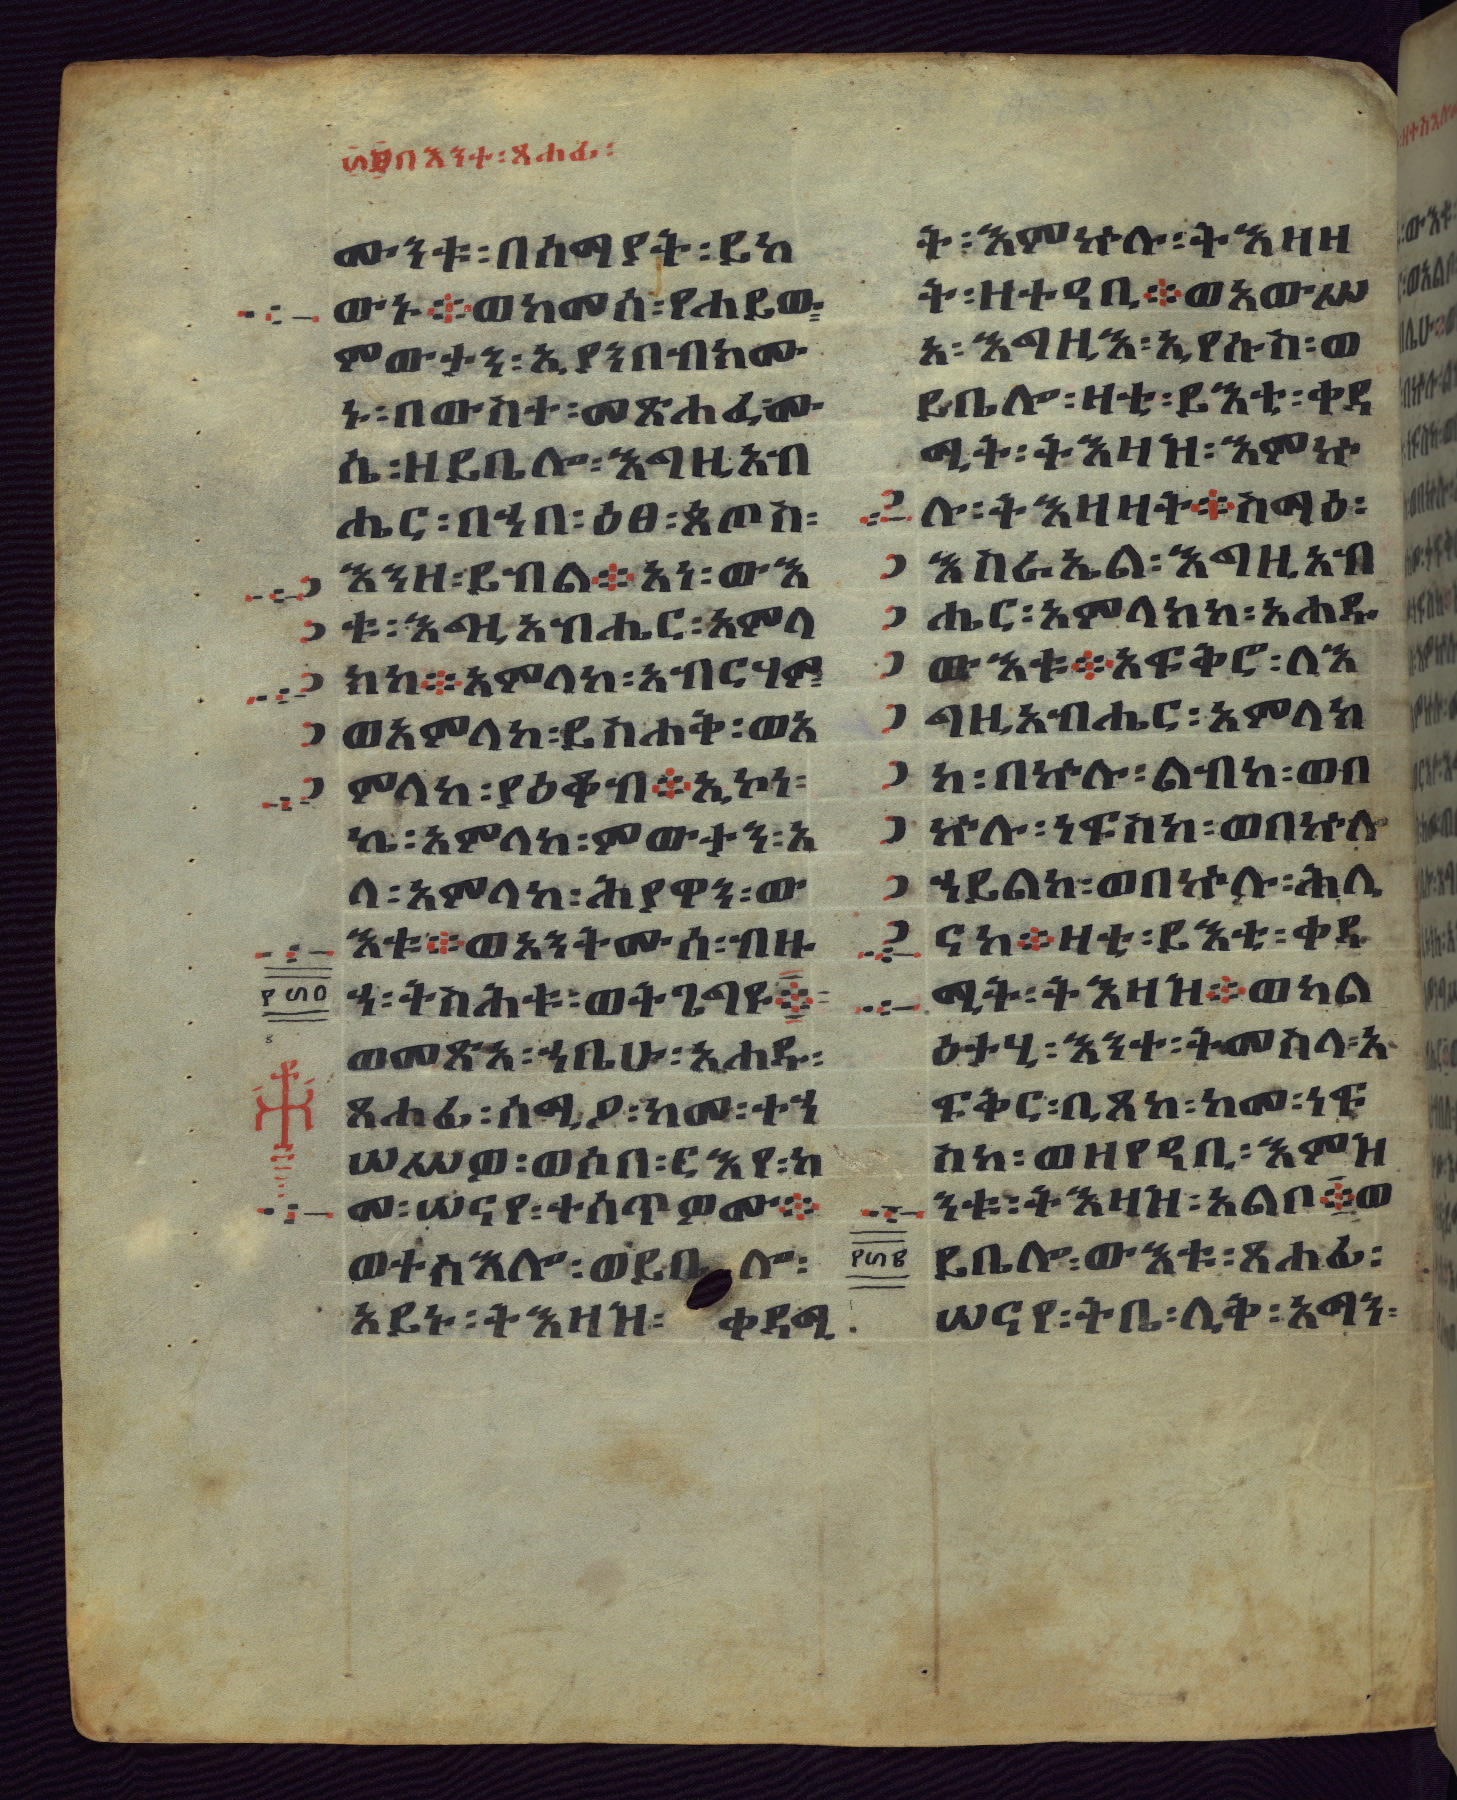 ፴፱በእንተ፡ጸሐፊ፡
ሙንቱ፡በሰማያት፡ይከ
ውኑ፨ወከመሰ፡የሐይው፡
ምውታን፡ኢያንበብክሙ
ኑ፡በውስተ፡መጽሐፈ፡ሙ
ሴ፡ዘይቤሎ፡እግዚአብ
ሔር፡በኀበ፡ዕፀ፡ጳጦስ፡
እንዘ፡ይብል፨አነ፡ውእ
ቱ፡እግዚአብሔር፡አምላ
ክከ፨አምላከ፡አብርሃም፡
ወአምላከ፡ይስሐቅ፡ወአ
ምላከ፡ያዕቆብ፨ኢኮነ፡
ኬ፡አምላከ፡ምውታን፡አ
ላ፡አምላከ፡ሕያዋን፡ው
እቱ፨ወአንትሙሰ፡ብዙ
፻፴፩
ኀ፡ትስሕቱ፡ወትጌግዩ፨
ወመጽአ፡ኀቤሁ፡አሐዱ፡
ጸሐፊ፡ሰሚዖ፡ከመ፡ተኀ
ሠሥዎ፡ወሶበ፡ርእየ፡ከ
መ፡ሠናየ፡ተሰጥዎሙ፨
ወተስእሎ፡ወይቤ ሎ፡
አይኑ፡ትእዛዝ፡ ቀዳሚ
ት፡እምኵሉ፡ትእዘዘ
ት፡ዘተዳቢ፨ወአውሥ
አ፡እግዚእ፡ኢየሱስ፡ወ
ይቤሎ፡ዛቲ፡ይእቲ፡ቀዳ
ሚት፡ትእዛዝ፡እምኵ
ሉ፡ትእዛዛት፨ስማዕ፡
እስራኤል፡እግዚአብ
ሔር፡አምላክከ፡አሐዱ
ውእቱ፨አፍቅሮ፡ለእ
ግዚአብሔር፡አምላክ
ከ፡በኵሉ፡ልብከ፡ወበ
ኵሉ፡ነፍስከ፡ወበኵሉ
ኀይልከ፡ወበኵሉ፡ሕሊ
ናከ፨ዛቲ፡ይእቲ፡ቀዳ
ሚት፡ትእዛዝ፨ወካል
ዕታሂ፡እንተ፡ትመስላ፡አ
ፍቅር፡ቢጸከ፡ከመ፡ነፍ
ስከ፡ወዘየዓቢ፡እምዝ
ንቱ፡ትእዛዝ፡አልቦ፨ወ
፻፴፪
ይቤሎ፡ውእቱ፡ጸሐፊ፡
ሠናየ፡ትቤ፡ሊቅ፡አማን፡